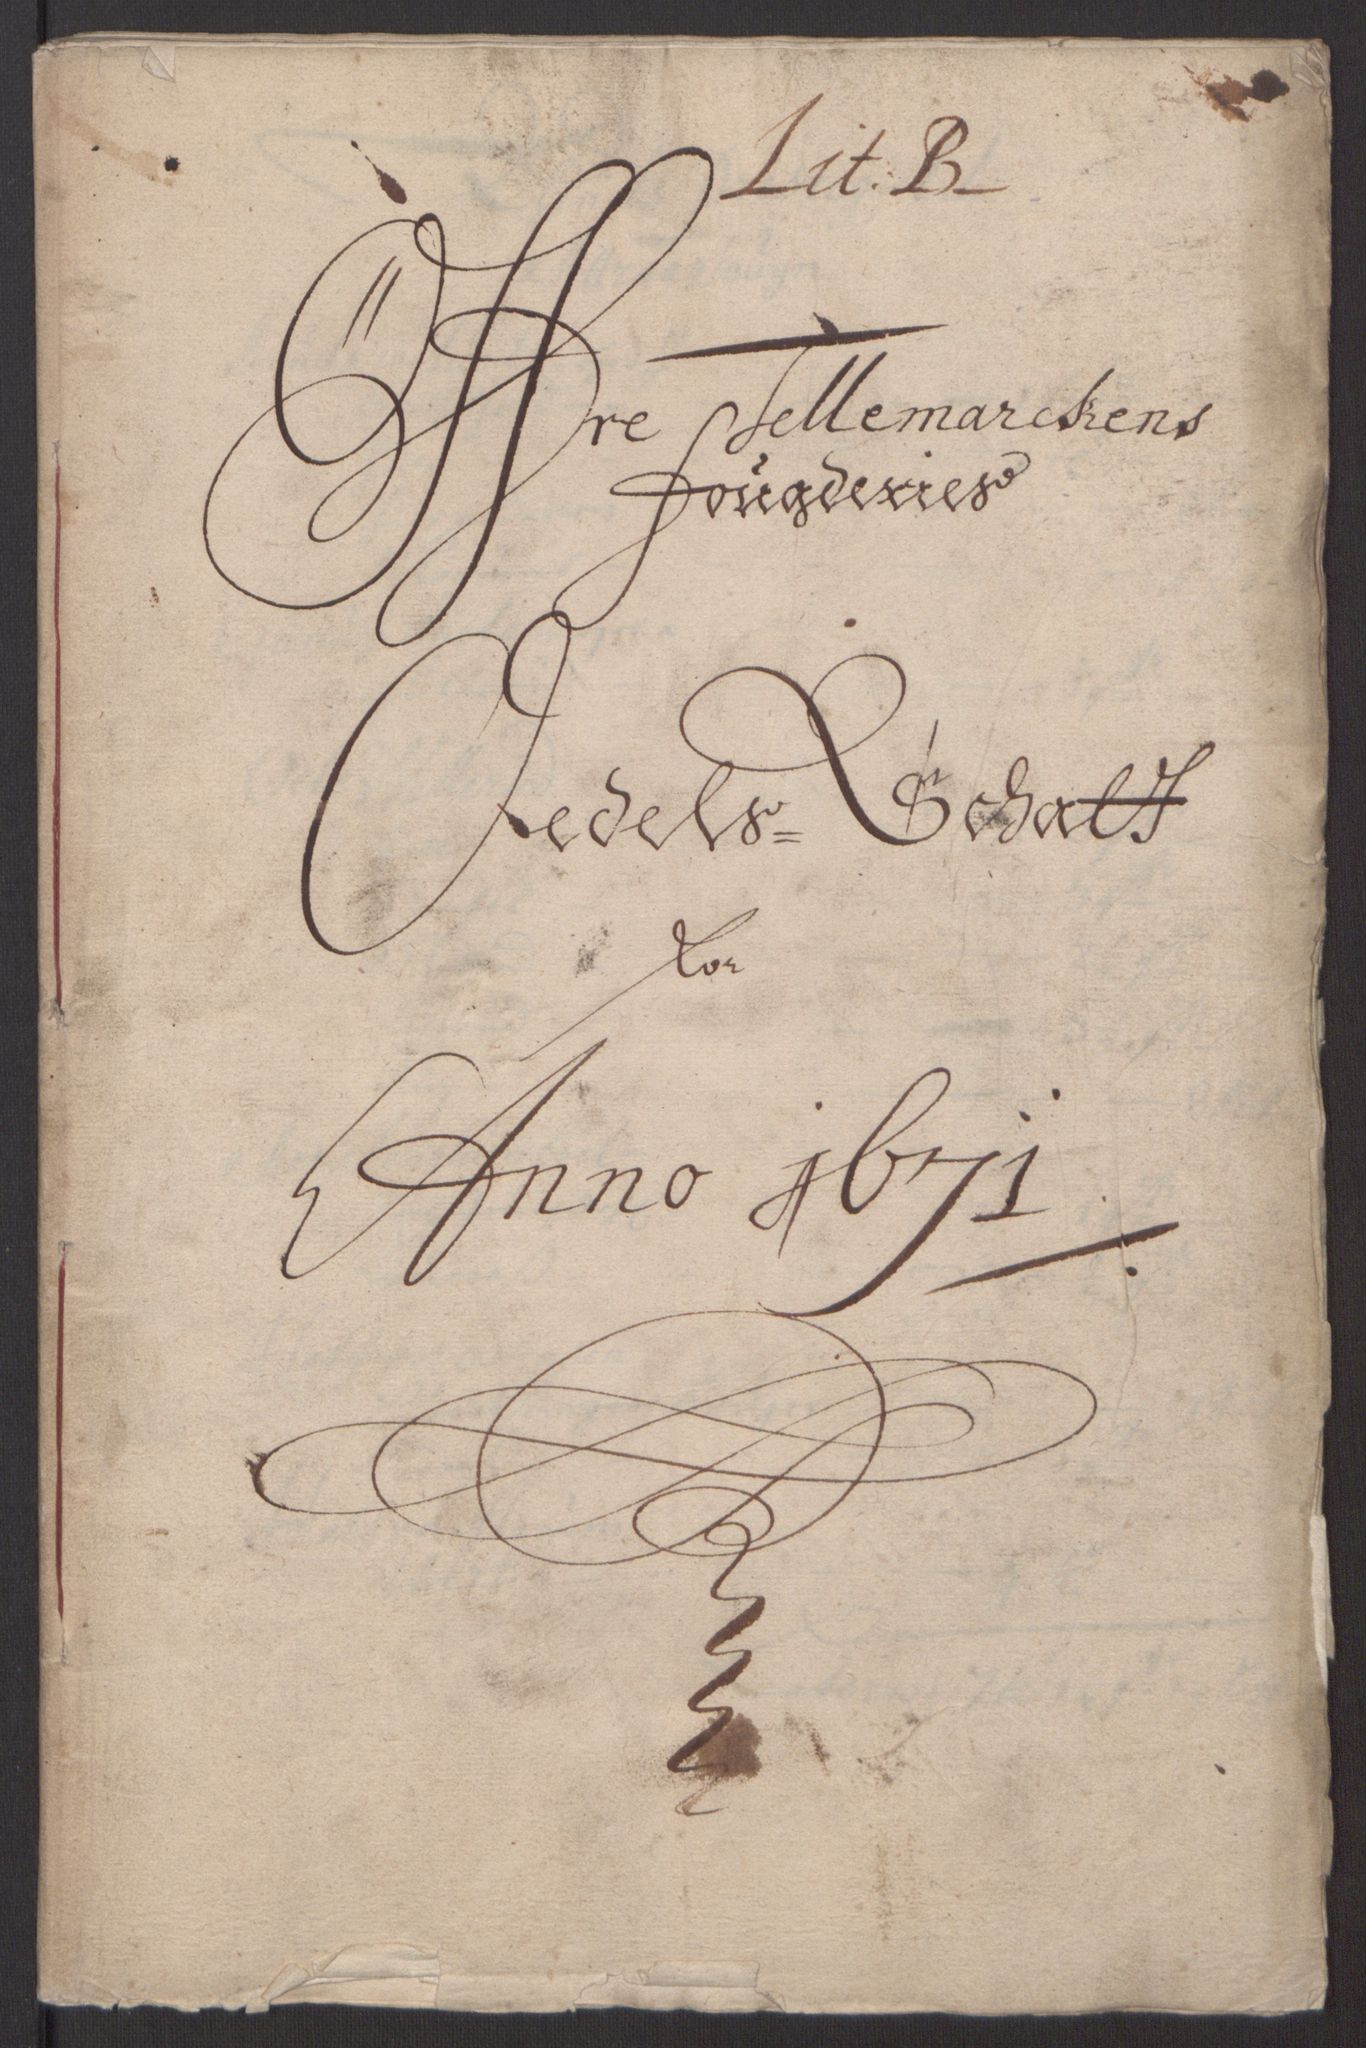 Lit. B
Öffre Tellemarckens
fougderies
Oedels= Schatt
for
Anno 1671